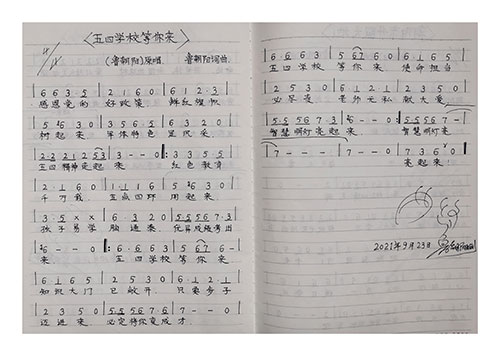 《五四学校等你来》
(鲁朝阳)原唱 鲁朝阳词曲
| 6 6 3 5 | 2 1 6 0 | 6 1 2 3 |
感恩党的 好政策 鲜红
| 5 6 3 0 | 3 5 6 5 | 3 2 3 0 |
树起来 军体特色 显风采
| 2 2 2 1 2 5 3 | 3 - - 0 :| 3 5 5 3 |
五四精神亮起来 红色教育
| 2 1 6 0 | 5 1 6 5 | 5 6 3 0 |
千万载 五点四环 用起来
| 3 5 X X | 6 3 2 0 | 5 5 5 6 7 3 |
孩子易学 脑通泰 优异成绩考出
| 6 - - 0 | 3 6 6 3 | 5 6 7 6 - |
来 五四学校 等你来
| 6 1 6 5 | 2 5 3 0 | 6 1 2 1 |
知识大门 已敞开 只要步子
| 2 3 5 0 | 5 5 5 6 5 6 | 7 - - 0 |
迈进来 必定将你变成才
| 6 6 6 3 | 5 6 7 6 0 | 6 1 6 5 |
五四学校 等你来 使命担当
| 2 5 3 0 | 6 1 2 1 | 2 3 5 0 |
必尽 老师无私 献大爱
| 5 5 5 6 7 6 3 | 6 - - 0 :| 5 5 5 6 7 - |
智慧明灯亮起来 智慧明灯
| 7 - - - | 7 - - 0 | 7 3 6 0 |
亮起来!
2021年9月23日